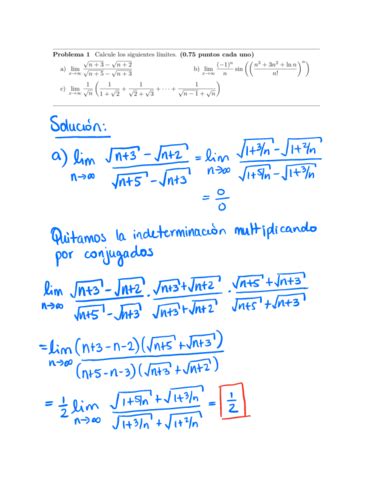 Problema 1 Calcule los siguientes límites. (0.75 puntos cada uno)
a) lim_{n→∞} (√(n+3) − √(n+2)) / (√(n+5) − √(n+3))   b) lim_{n→∞} ((−1)^n / n) sin(((n³ + 3n² + ln n) / n!)^n)
c) lim_{n→∞} (1/√n) (1/(1+√2) + 1/(√2+√3) + ⋯ + 1/(√(n−1)+√n))
Solución:
a) lim_{n→∞} (√(n+3) − √(n+2)) / (√(n+5) − √(n+3)) = lim_{n→∞} (√(1+3/n) − √(1+2/n)) / (√(1+5/n) − √(1+3/n))
= 0/0
Quitamos la indeterminación multiplicando
por conjugados
lim_{n→∞} (√(n+3) − √(n+2)) / (√(n+5) − √(n+3)) · (√(n+3) + √(n+2)) / (√(n+3) + √(n+2)) · (√(n+5) + √(n+3)) / (√(n+5) + √(n+3))
= lim_{n→∞} (n+3−n−2)(√(n+5) + √(n+3)) / (n+5−n−3)(√(n+3) + √(n+2))
= 1/2 lim_{n→∞} (√(1+5/n) + √(1+3/n)) / (√(1+3/n) + √(1+2/n)) = 1/2